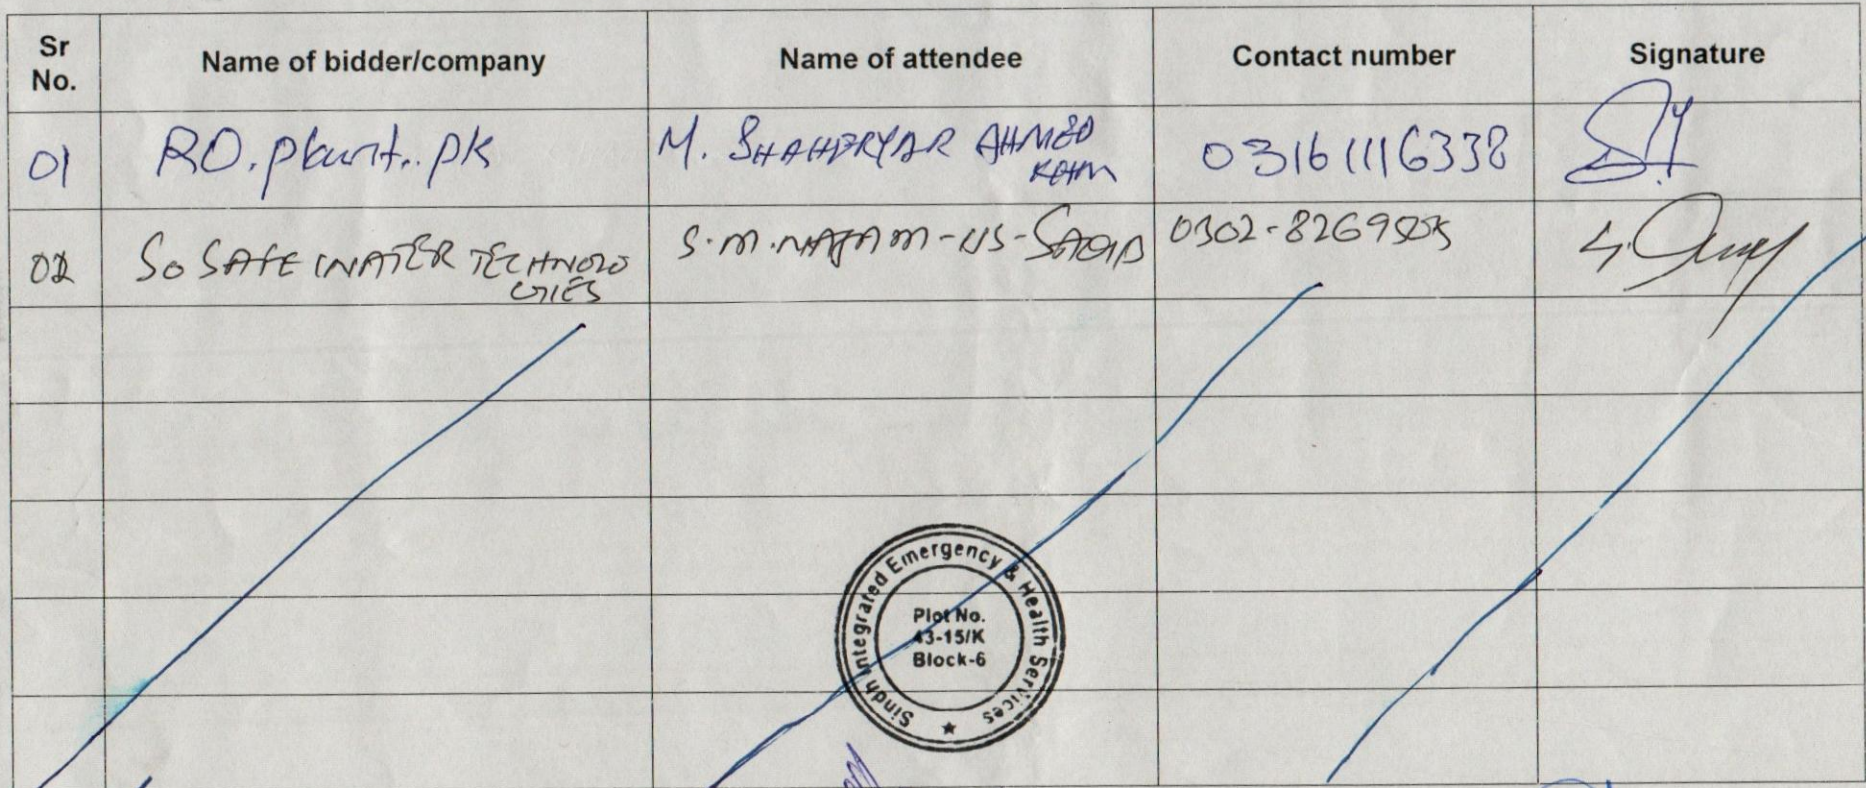 Sr No. Name of bidder/company Name of attendee Contact number Signature
01 RO.plant..pk M. SHAHERYAR AHMED 03161116338
02 SO SAFE WATER TECHNOLO S.M.NAJAM-US-SAQIB 0302-8269505
GIES
Sindh Integrated Emergency & Health Services
Plot No.
43-15/K
Block-6